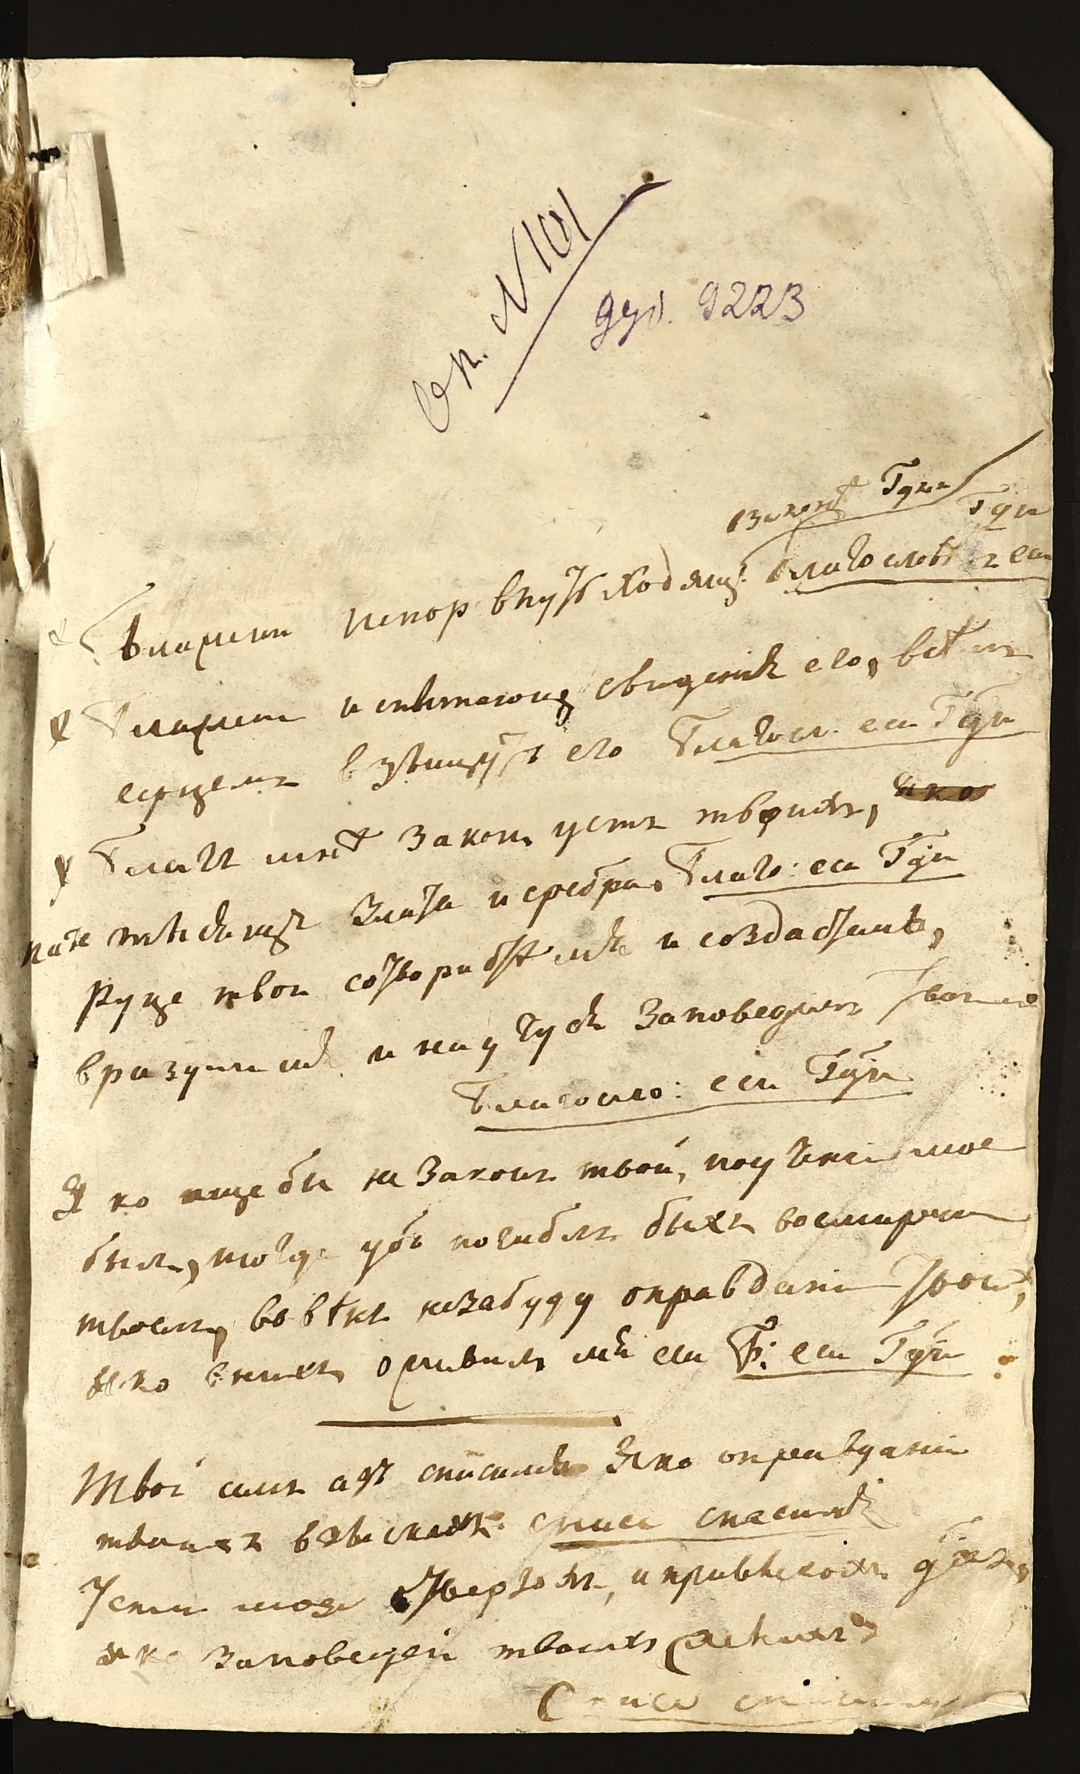 Оп. № 101
дух. 9223
в законѣ Гдни
Гди
Блажени непор в путь ходящ: Благословѣ еси
Блажени испытающ свидения его, всѣмъ
серцемъ взыщутъ его Благосл. еси Гди
Благъ мнѣ законъ устъ твоихъ, яко
паче тысящъ злата и сребра. Благо: еси Гди
Руце твои сотвористѣ мя и создастѣ мя,
вразуми мя и научуся заповедемъ твоимъ
Благосло: еси Гди
Яко аще бы не законъ твой, поучение мое
былъ, тогда убо погиблъ быхъ восмирении
твоемъ, во вѣкъ незабуду оправдани твои,
яко в нихъ оживилъ мя еси Б: еси Гди
Твой есмь азъ спаси мя яко оправдани
твоихъ взыскахъ спасе спаси мя
Уста моя отверзохъ, и привлекохъ духъ,
яко заповедей твоихъ желахъ
Спасе спаси мя